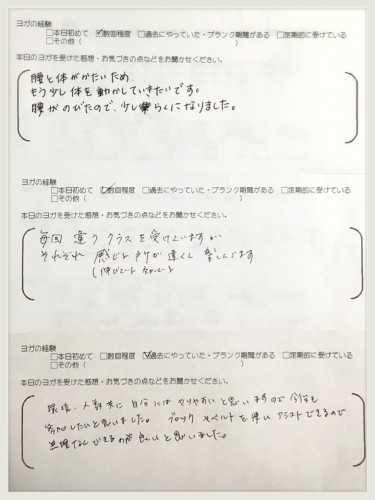 ヨガの経験
□本日初めて ☑数回程度 □過去にやっていた・ブランク期間がある □定期的に受けている
□その他（ ）
本日のヨガを受けた感想・お気づきの点などをお聞かせください。
腰と体がかたいため、
もう少し体を動かしていきたいです。
腰がのびたので、少し楽らくになりました。
ヨガの経験
□本日初めて ☑数回程度 □過去にやっていた・ブランク期間がある □定期的に受けている
□その他（ ）
本日のヨガを受けた感想・お気づきの点などをお聞かせください。
毎回 違う クラスを受けていますが
それぞれ 感じる 所が 違くて 楽しんでます
ヨガの経験
□本日初めて □数回程度 ☑過去にやっていた・ブランク期間がある □定期的に受けている
□その他（ ）
本日のヨガを受けた感想・お気づきの点などをお聞かせください。
環境・人数共に自分にはやりやすいと思いますので今後も
参加したいと思いました。ブロックやベルトを使いアシストできるので
無理なくできるのが良いと思いました。